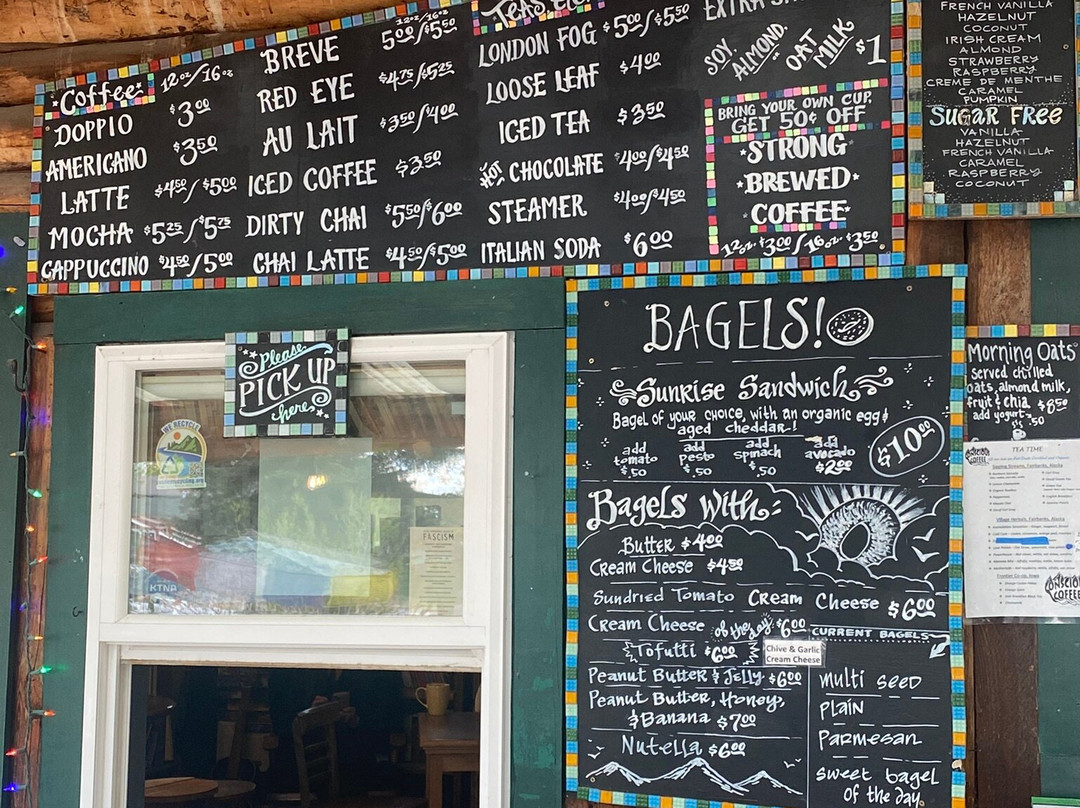 *Coffee*
12oz/16oz
DOPPIO $3.00
AMERICANO $3.50
LATTE $4.50/$5.00
MOCHA $5.25/$5.75
CAPPUCCINO $4.50/5.00
12oz/16oz
BREVE 5.00/$5.50
RED EYE $4.75/$5.25
AU LAIT $3.50/$4.00
ICED COFFEE $3.50
DIRTY CHAI $5.50/$6.00
CHAI LATTE $4.50/$5.00
TEAS
LONDON FOG $5.00/$5.50
LOOSE LEAF $4.00
ICED TEA $3.50
HOT CHOCOLATE $4.00/$4.50
STEAMER $4.00/$4.50
ITALIAN SODA $6.00
EXTRA
SOY, ALMOND, OAT MILK $1
BRING YOUR OWN CUP,
GET 50¢ OFF
*STRONG*
*BREWED*
*COFFEE*
12oz $3.00/16oz $3.50
FRENCH VANILLA
HAZELNUT
COCONUT
IRISH CREAM
ALMOND
STRAWBERRY
RASPBERRY
CREME DE MENTHE
CARAMEL
PUMPKIN
SUGAR FREE
VANILLA
HAZELNUT
FRENCH VANILLA
CARAMEL
RASPBERRY
COCONUT
Please
PICK UP
here
WE RECYCLE
KTNA
FASCISM
BAGELS!
Sunrise Sandwich
Bagel of your choice, with an organic egg &
aged cheddar!
$10.00
add tomato $.50
add pesto $.50
add spinach $.50
add avocado $2.00
Bagels with:
Butter $4.00
Cream Cheese $4.50
Sundried Tomato Cream Cheese $6.00
Cream Cheese of the day: $6.00
Chive & Garlic
Cream Cheese
Tofutti $6.00
Peanut Butter & Jelly $6.00
Peanut Butter, Honey,
& Banana $7.00
Nutella $6.00
CURRENT BAGELS
multi seed
Plain
Parmesan
sweet bagel
of the day
Morning Oats
served chilled
oats, almond milk,
fruit & chia $8.50
add yogurt
TEA TIME